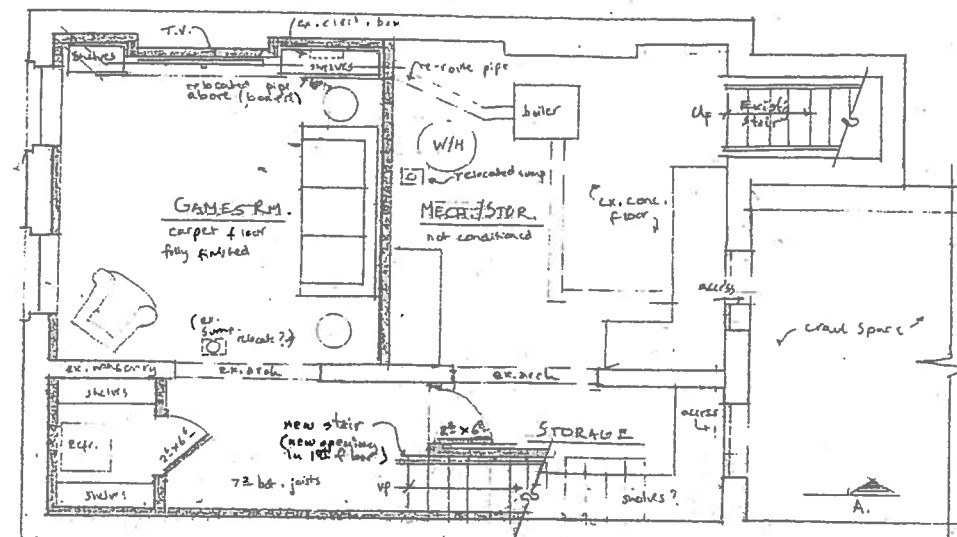 T.V.
ex. elect. box
shelves
shelves
relocated pipe
above (boxed)
re-route pipe
boiler
W/H
relocated sump
GAMES RM.
carpet floor
fully finished
MECH./STOR.
not conditioned
ex. conc.
floor
Up
Existg
Stair
access
crawl space
(ex.
sump.
relocate?)
ex. masonry
ex. arch
ex. arch
shelves
Refr.
shelves
2⁸ x 6⁸
new stair
(new opening
in 1st floor)
2⁸ x 6⁸
STORAGE
access
up
shelves?
A.